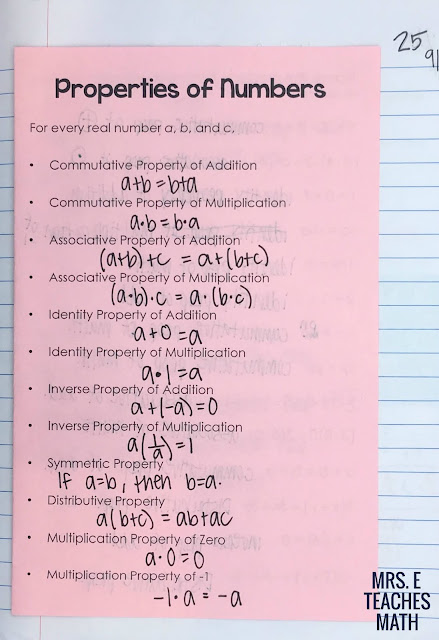 25
91
Properties of Numbers
For every real number a, b, and c,
• Commutative Property of Addition
a+b=b+a
• Commutative Property of Multiplication
a·b=b·a
• Associative Property of Addition
(a+b)+c = a+(b+c)
• Associative Property of Multiplication
(a·b)·c = a·(b·c)
• Identity Property of Addition
a+0=a
• Identity Property of Multiplication
a·1=a
• Inverse Property of Addition
a+(-a)=0
• Inverse Property of Multiplication
a(1/a)=1
• Symmetric Property
If a=b, then b=a.
• Distributive Property
a(b+c)=ab+ac
• Multiplication Property of Zero
a·0=0
• Multiplication Property of -1
-1·a = -a
MRS. E
TEACHES
MATH